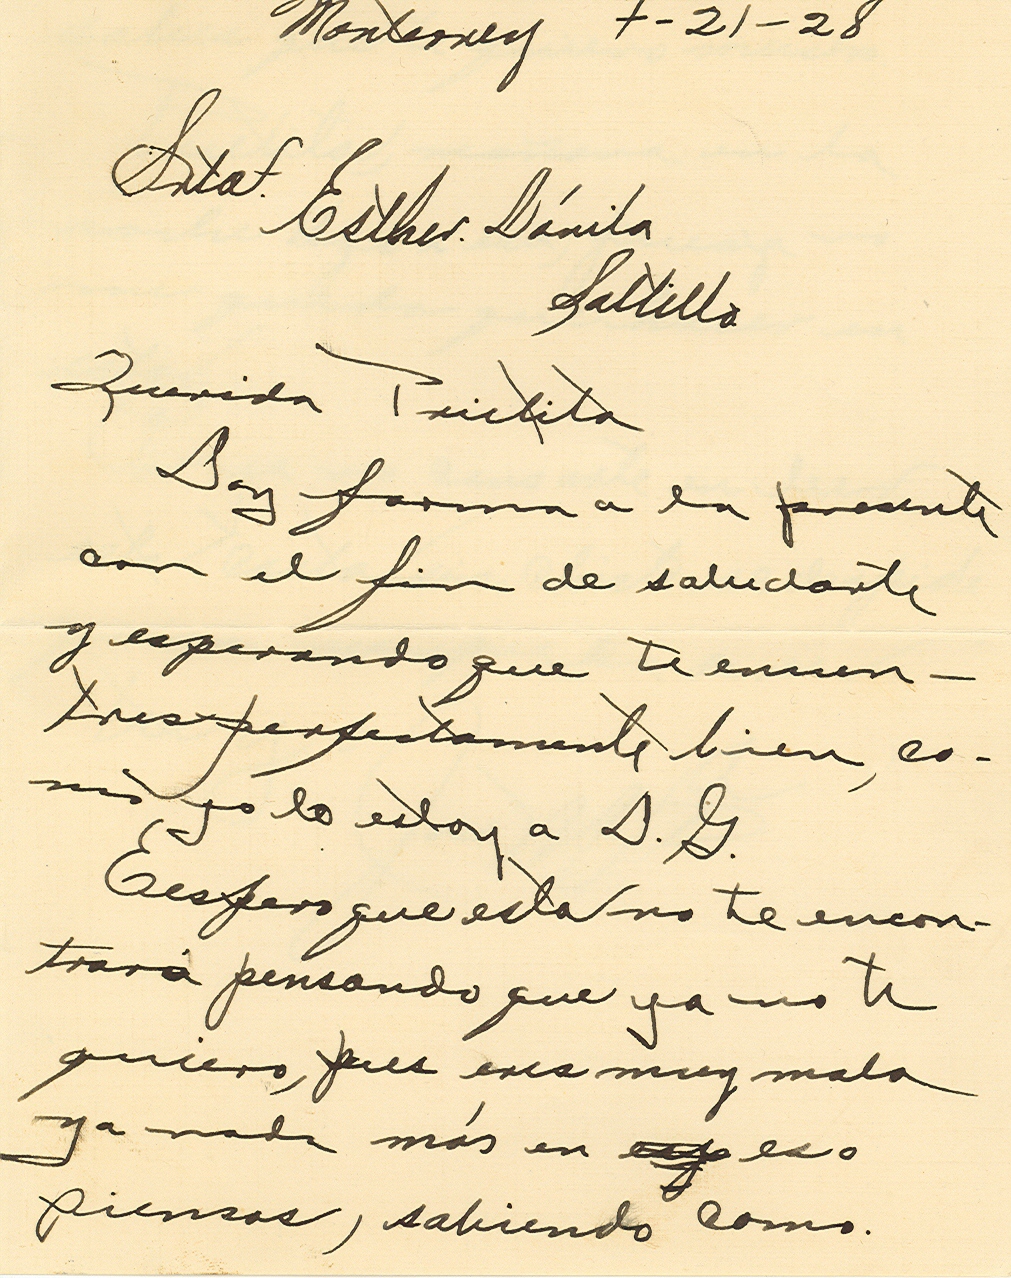 Monterrey 7-21-28
Srita. Esther Dávila
Saltillo
Querida Tristita
Doy forma a la presente
con el fin de saludarte
y esperando que te encuen-
tres perfectamente bien, co-
mo yo lo estoy a D. G.
Eespero que esta no te encon-
trará pensando que ya no te
quiero, pues eres muy mala
ya nada más en eso
piensas, sabiendo como.